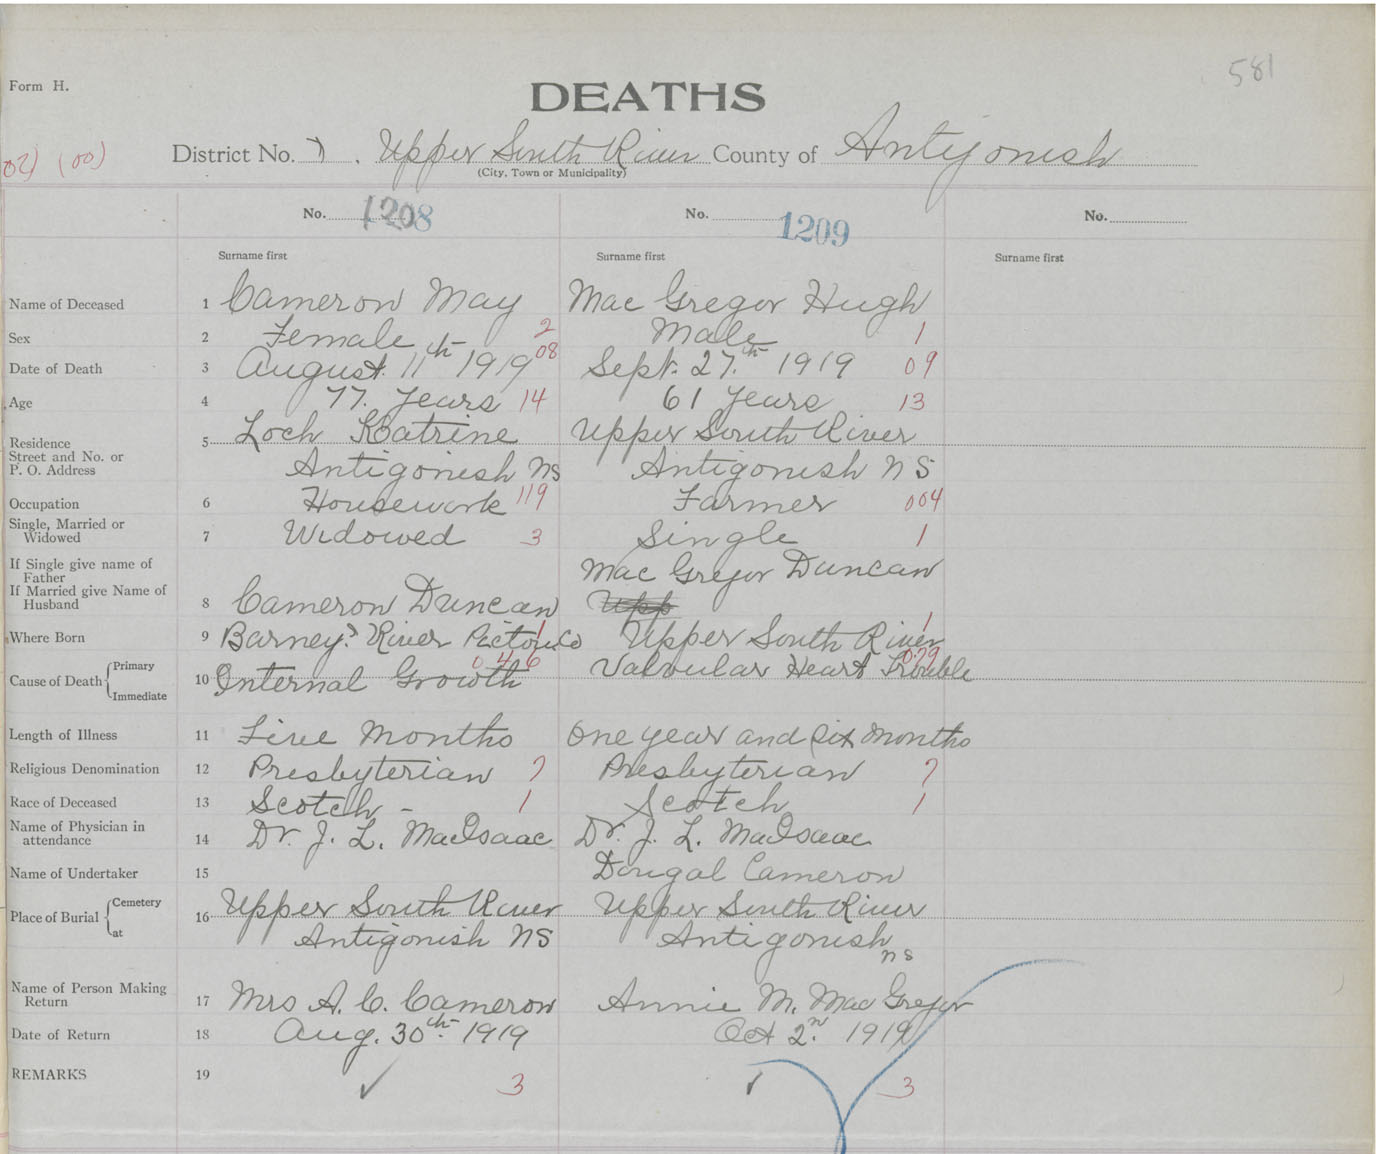 581
Form H.
DEATHS
02) (00)
District No. 7. Upper South River County of Antigonish
(City, Town or Municipality)
No. 1208 No. 1209 No.
Surname first Surname first Surname first
Name of Deceased 1 Cameron May Mac Gregor Hugh
Sex 2 Female 2 Male 1
Date of Death 3 August 11th 1919 08 Sept. 27th 1919 09
Age 4 77 Years 14 61 Years 13
Residence 5 Loch Katrine Upper South River
Street and No. or
P. O. Address Antigonish NS Antigonish NS
Occupation 6 Housework 119 Farmer 004
Single, Married or
Widowed 7 Widowed 3 Single 1
If Single give name of
Father Mac Gregor Duncan
If Married give Name of
Husband 8 Cameron Duncan Upp
Where Born 9 Barney's River Pictou Co 1 Upper South River 1
Cause of Death Primary 046 079
Immediate 10 Internal Growth Valvular Heart Trouble
Length of Illness 11 Five Months One year and six months
Religious Denomination 12 Presbyterian 7 Presbyterian 7
Race of Deceased 13 Scotch - 1 Scotch 1
Name of Physician in
attendance 14 Dr. J. L. MacIsaac Dr. J. L. MacIsaac
Name of Undertaker 15 Dougal Cameron
Place of Burial Cemetery 16 Upper South River Upper South River
at Antigonish NS Antigonish NS
Name of Person Making
Return 17 Mrs A. C. Cameron Annie M. Mac Gregor
Date of Return 18 Aug. 30th 1919 Oct 2n. 1919
REMARKS 19 ✓ 3 ✓ 3